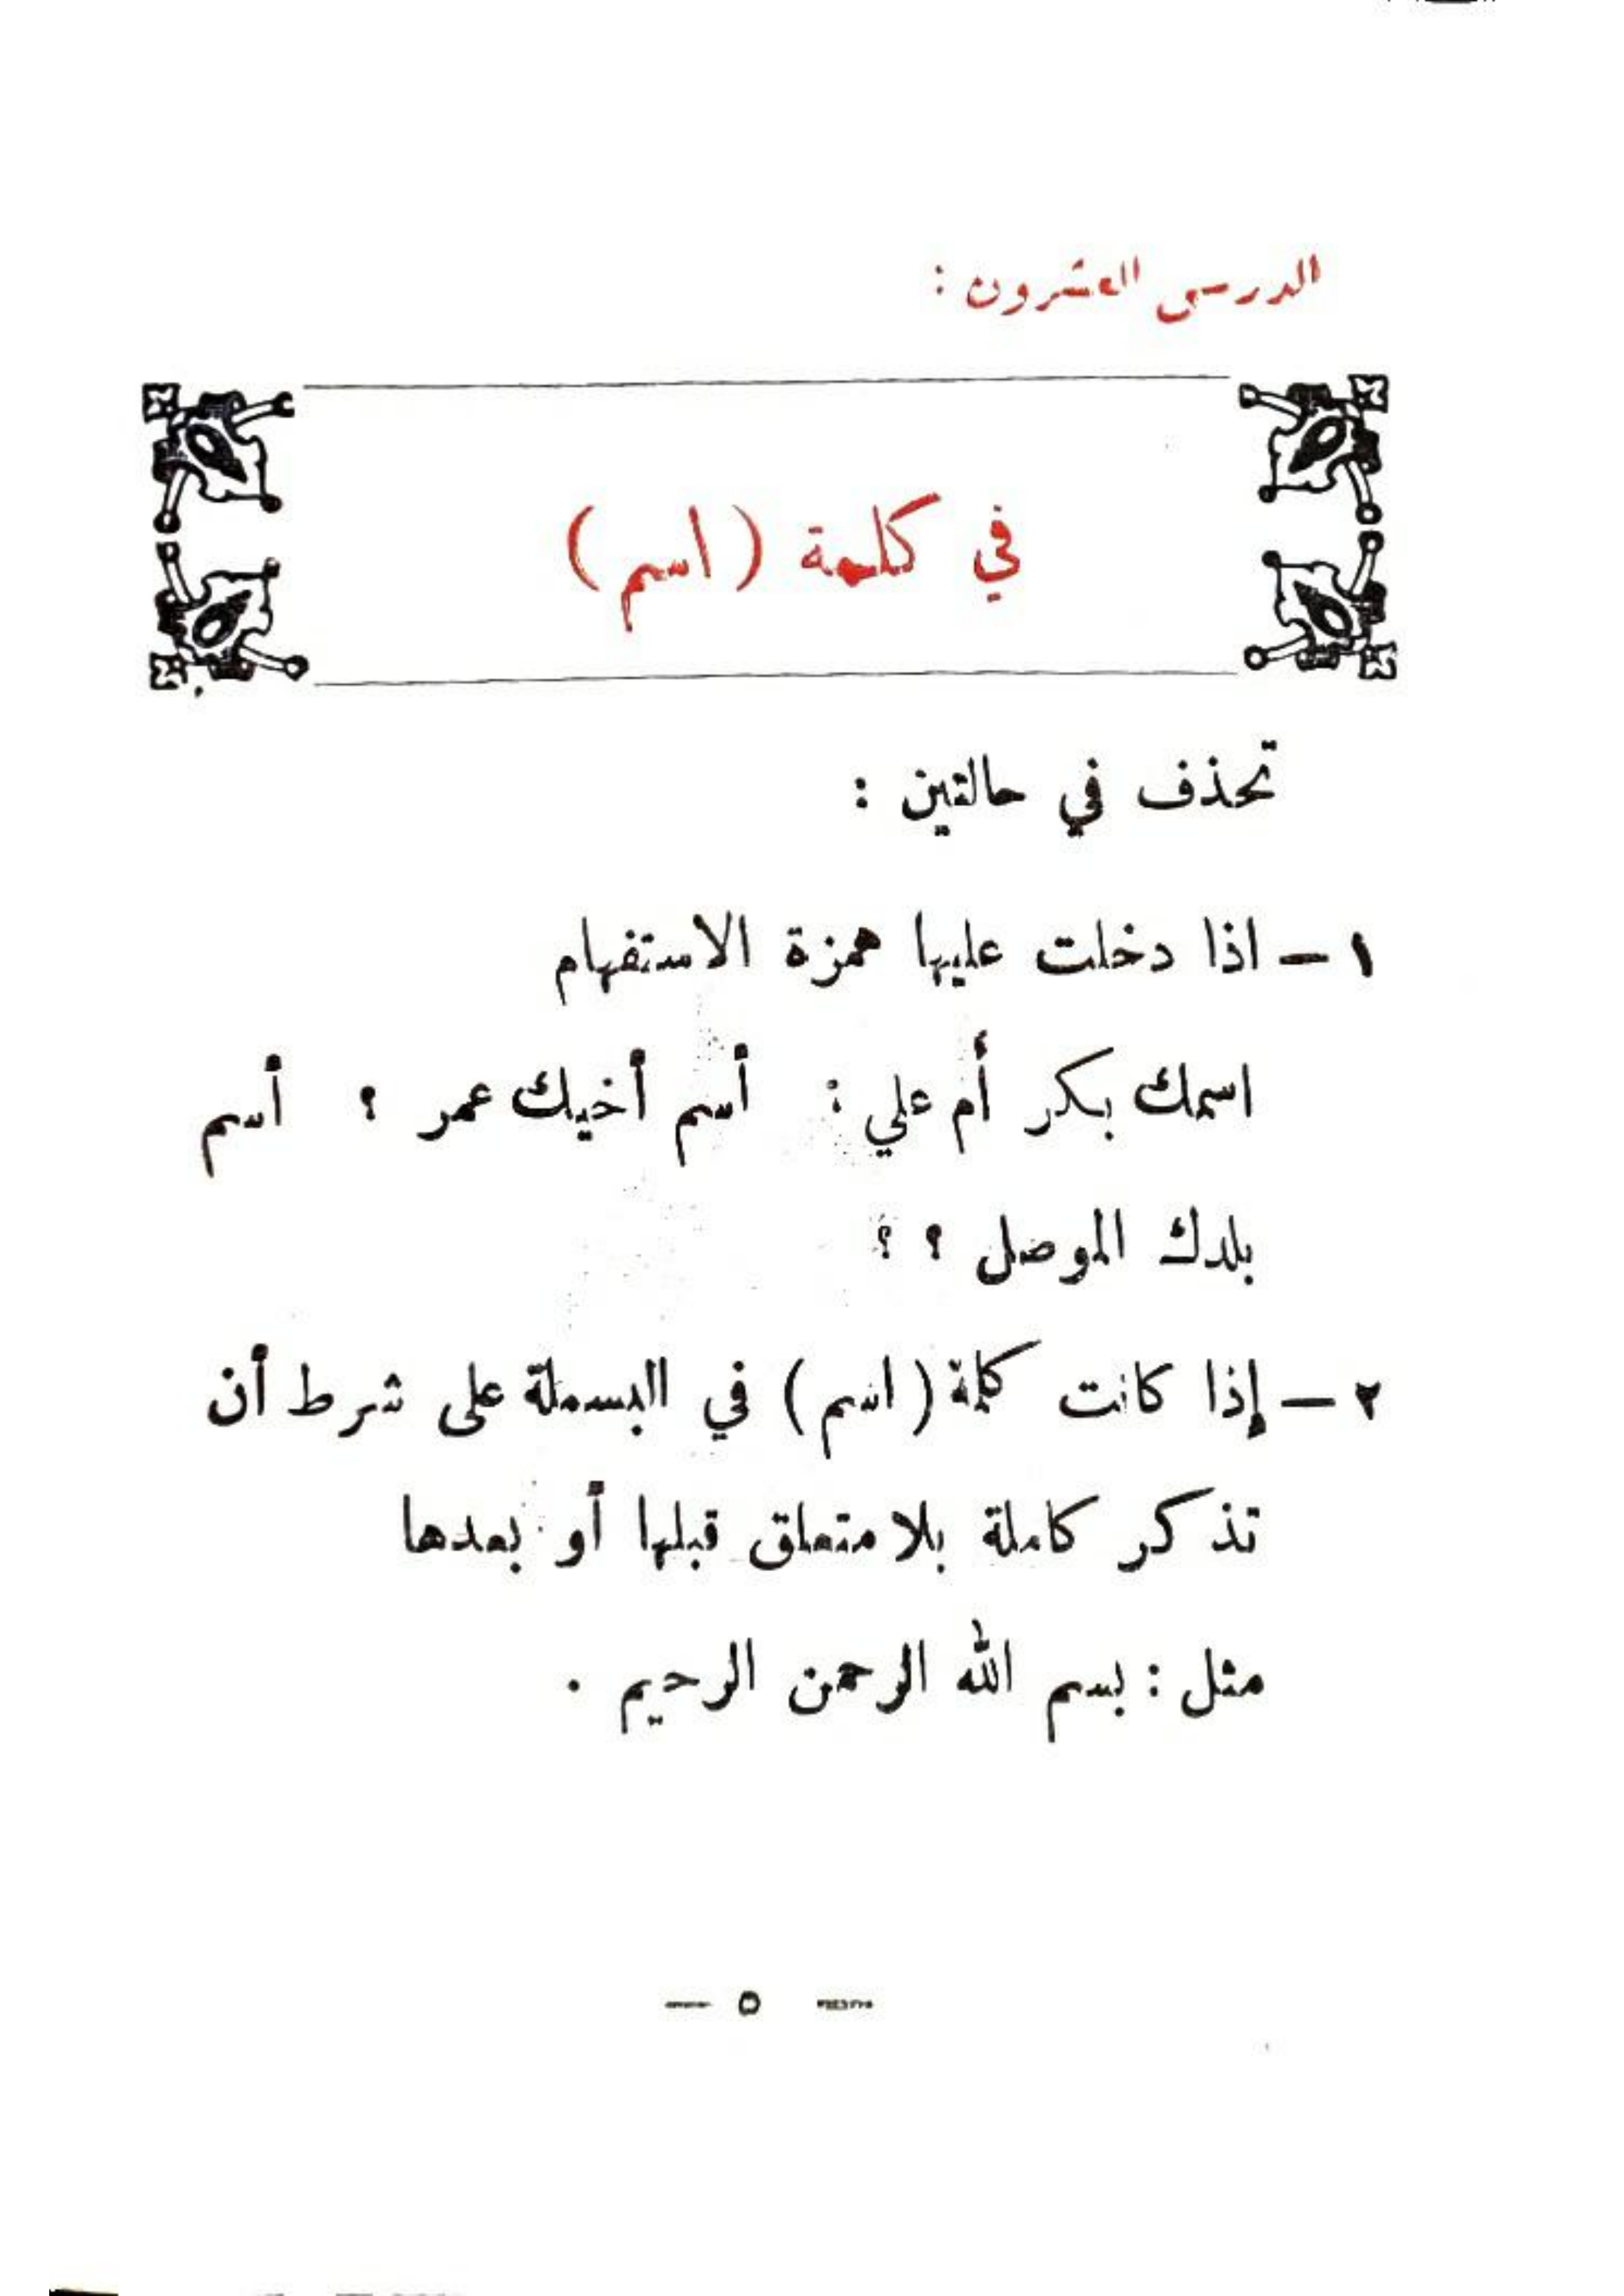 الدرس العشرون :
في كلمة ( اسم )
تحذف في حالتين :
١ – اذا دخلت عليها همزة الاستفهام
اسمك بكر أم علي : أسم أخيك عمر ؟ أسم
بلدك الموصل ؟ ؟
٢ – إذا كانت كلمة ( اسم ) في البسملة على شرط أن
تذكر كاملة بلا متعلق قبلها أو بعدها
مثل : بسم الله الرحمن الرحيم .
— ٥ —